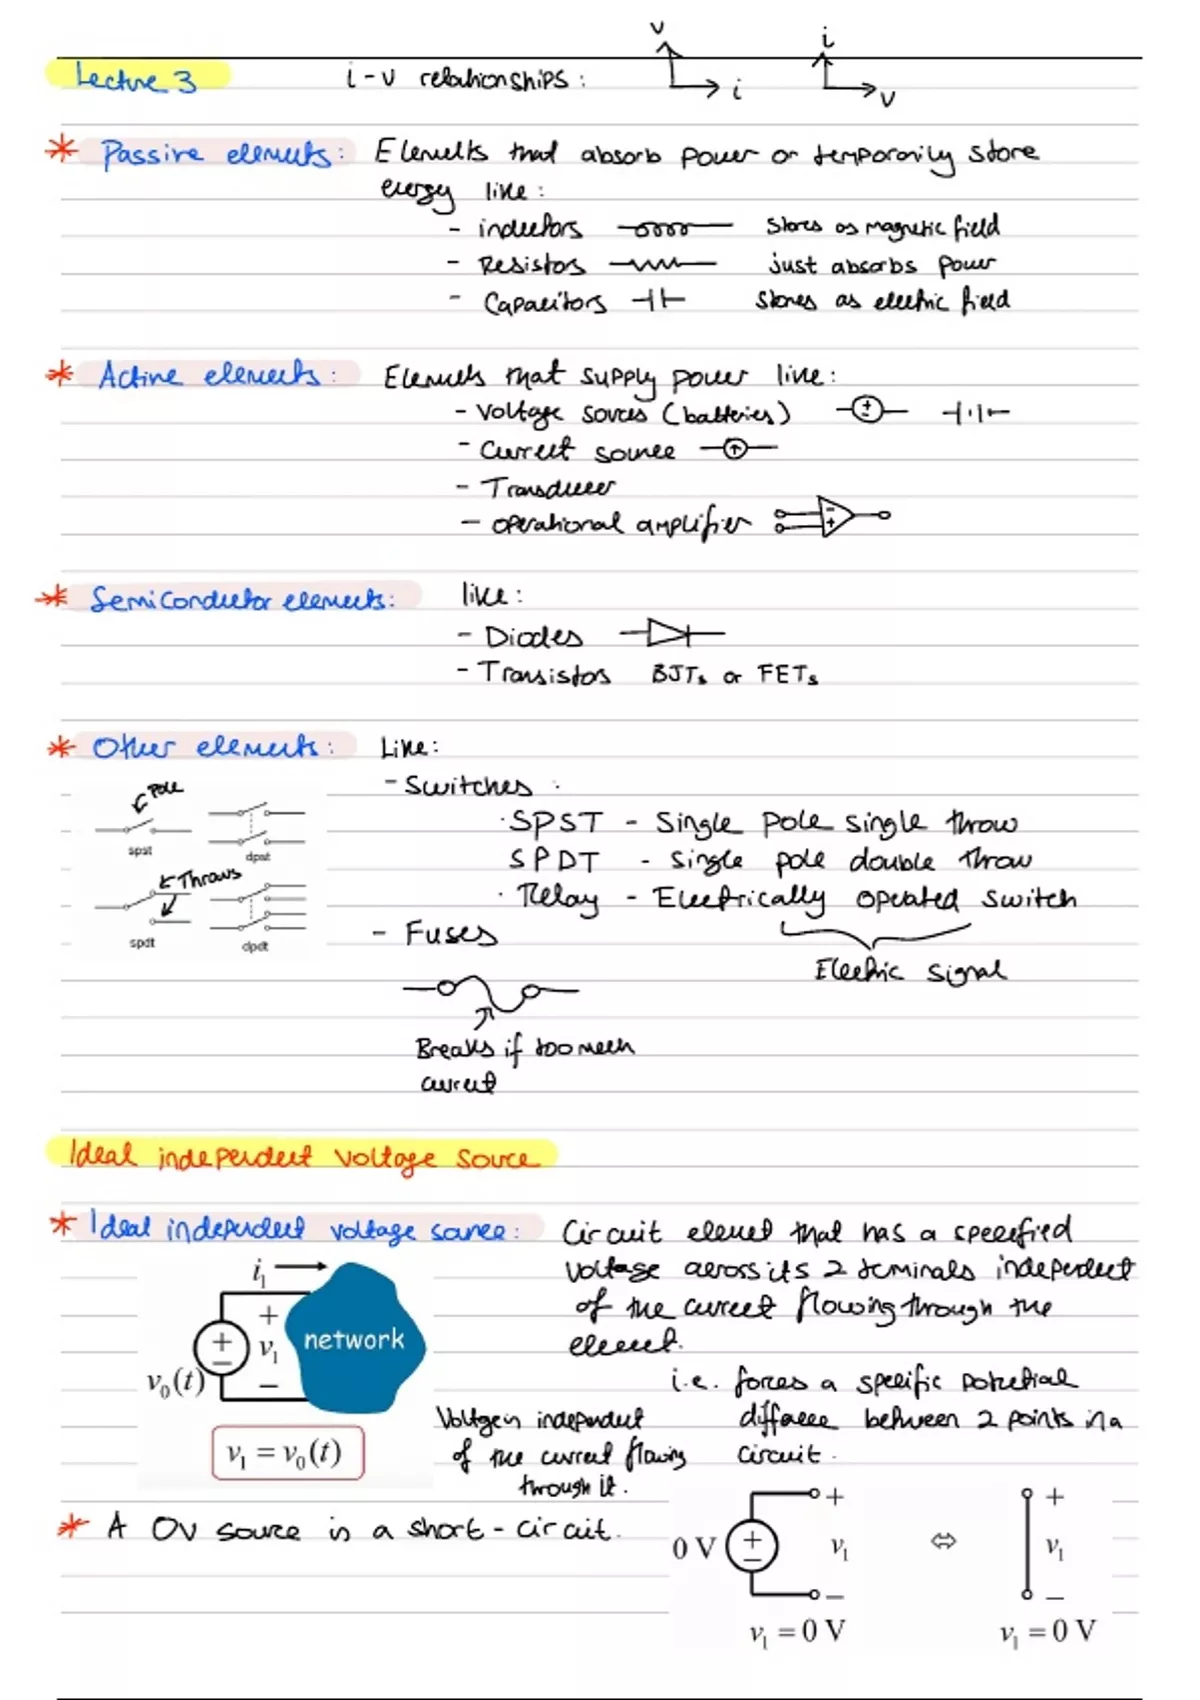 Lecture 3
i - v relationships :
v
i
i
v
* Passive elements: Elements that absorb power or temporarily store
energy like :
- inductors stores as magnetic field
- Resistors just absorbs power
- Capacitors stores as electric field
* Active elements: Elements that supply power like:
- Voltage sources (batteries)
- Current source
- Transducer
- operational amplifier
* Semiconductor elements: like:
- Diodes
- Transistors BJTs or FETs
* Other elements: Like:
- Switches :
· SPST - Single pole single throw
SPDT - Single pole double throw
· Relay - Electrically operated switch
Electric signal
Pole
spst
dpst
Throws
spdt
dpdt
- Fuses
Breaks if too much
current
Ideal independent voltage source
* Ideal independent voltage source: Circuit element that has a specified
voltage across its 2 terminals independent
of the current flowing through the
element.
i.e. forces a specific potential
difference between 2 points in a
circuit.
i₁
+
v₁
−
+
−
v₀(t)
network
v₁ = v₀(t)
Voltage is independent
of the current flowing
through it.
* A 0V source is a short-circuit.
0 V
+
−
+
v₁
−
v₁ = 0 V
⇔
+
v₁
−
v₁ = 0 V